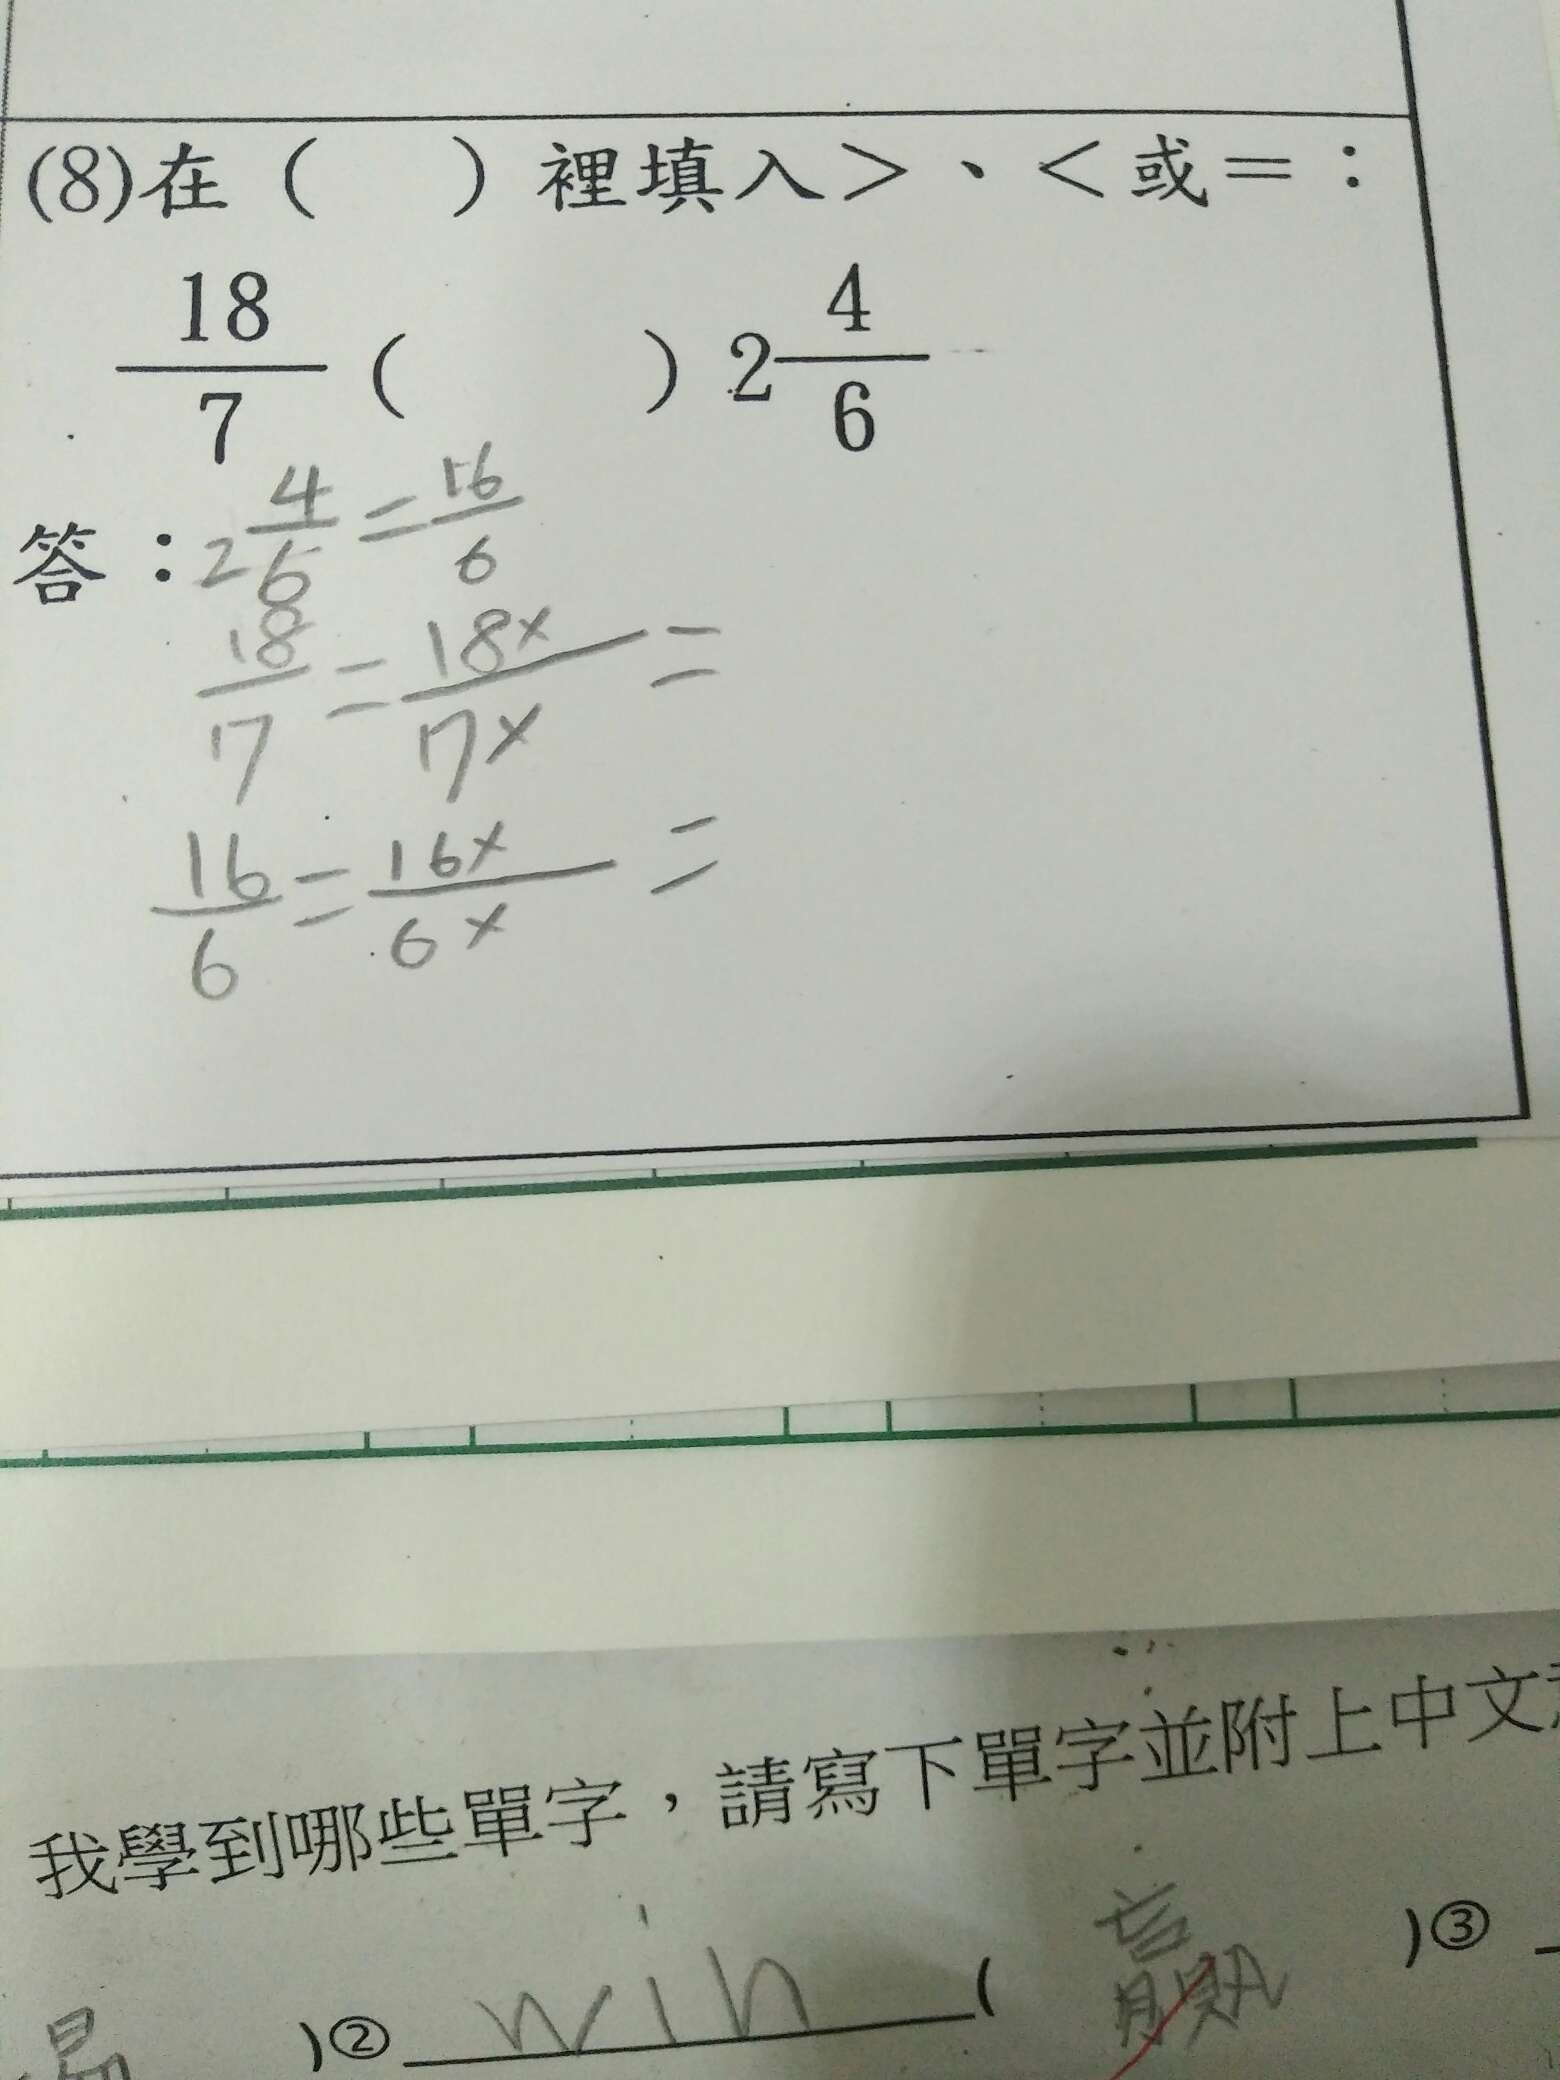 (8)在（　）裡填入＞、＜或＝：
18/7 (　) 2 4/6
答：2 4/6 = 16/6
18/17 = 18×/17× =
16/6 = 16×/6× =
我學到哪些單字，請寫下單字並附上中文
)② win ( 贏 )③